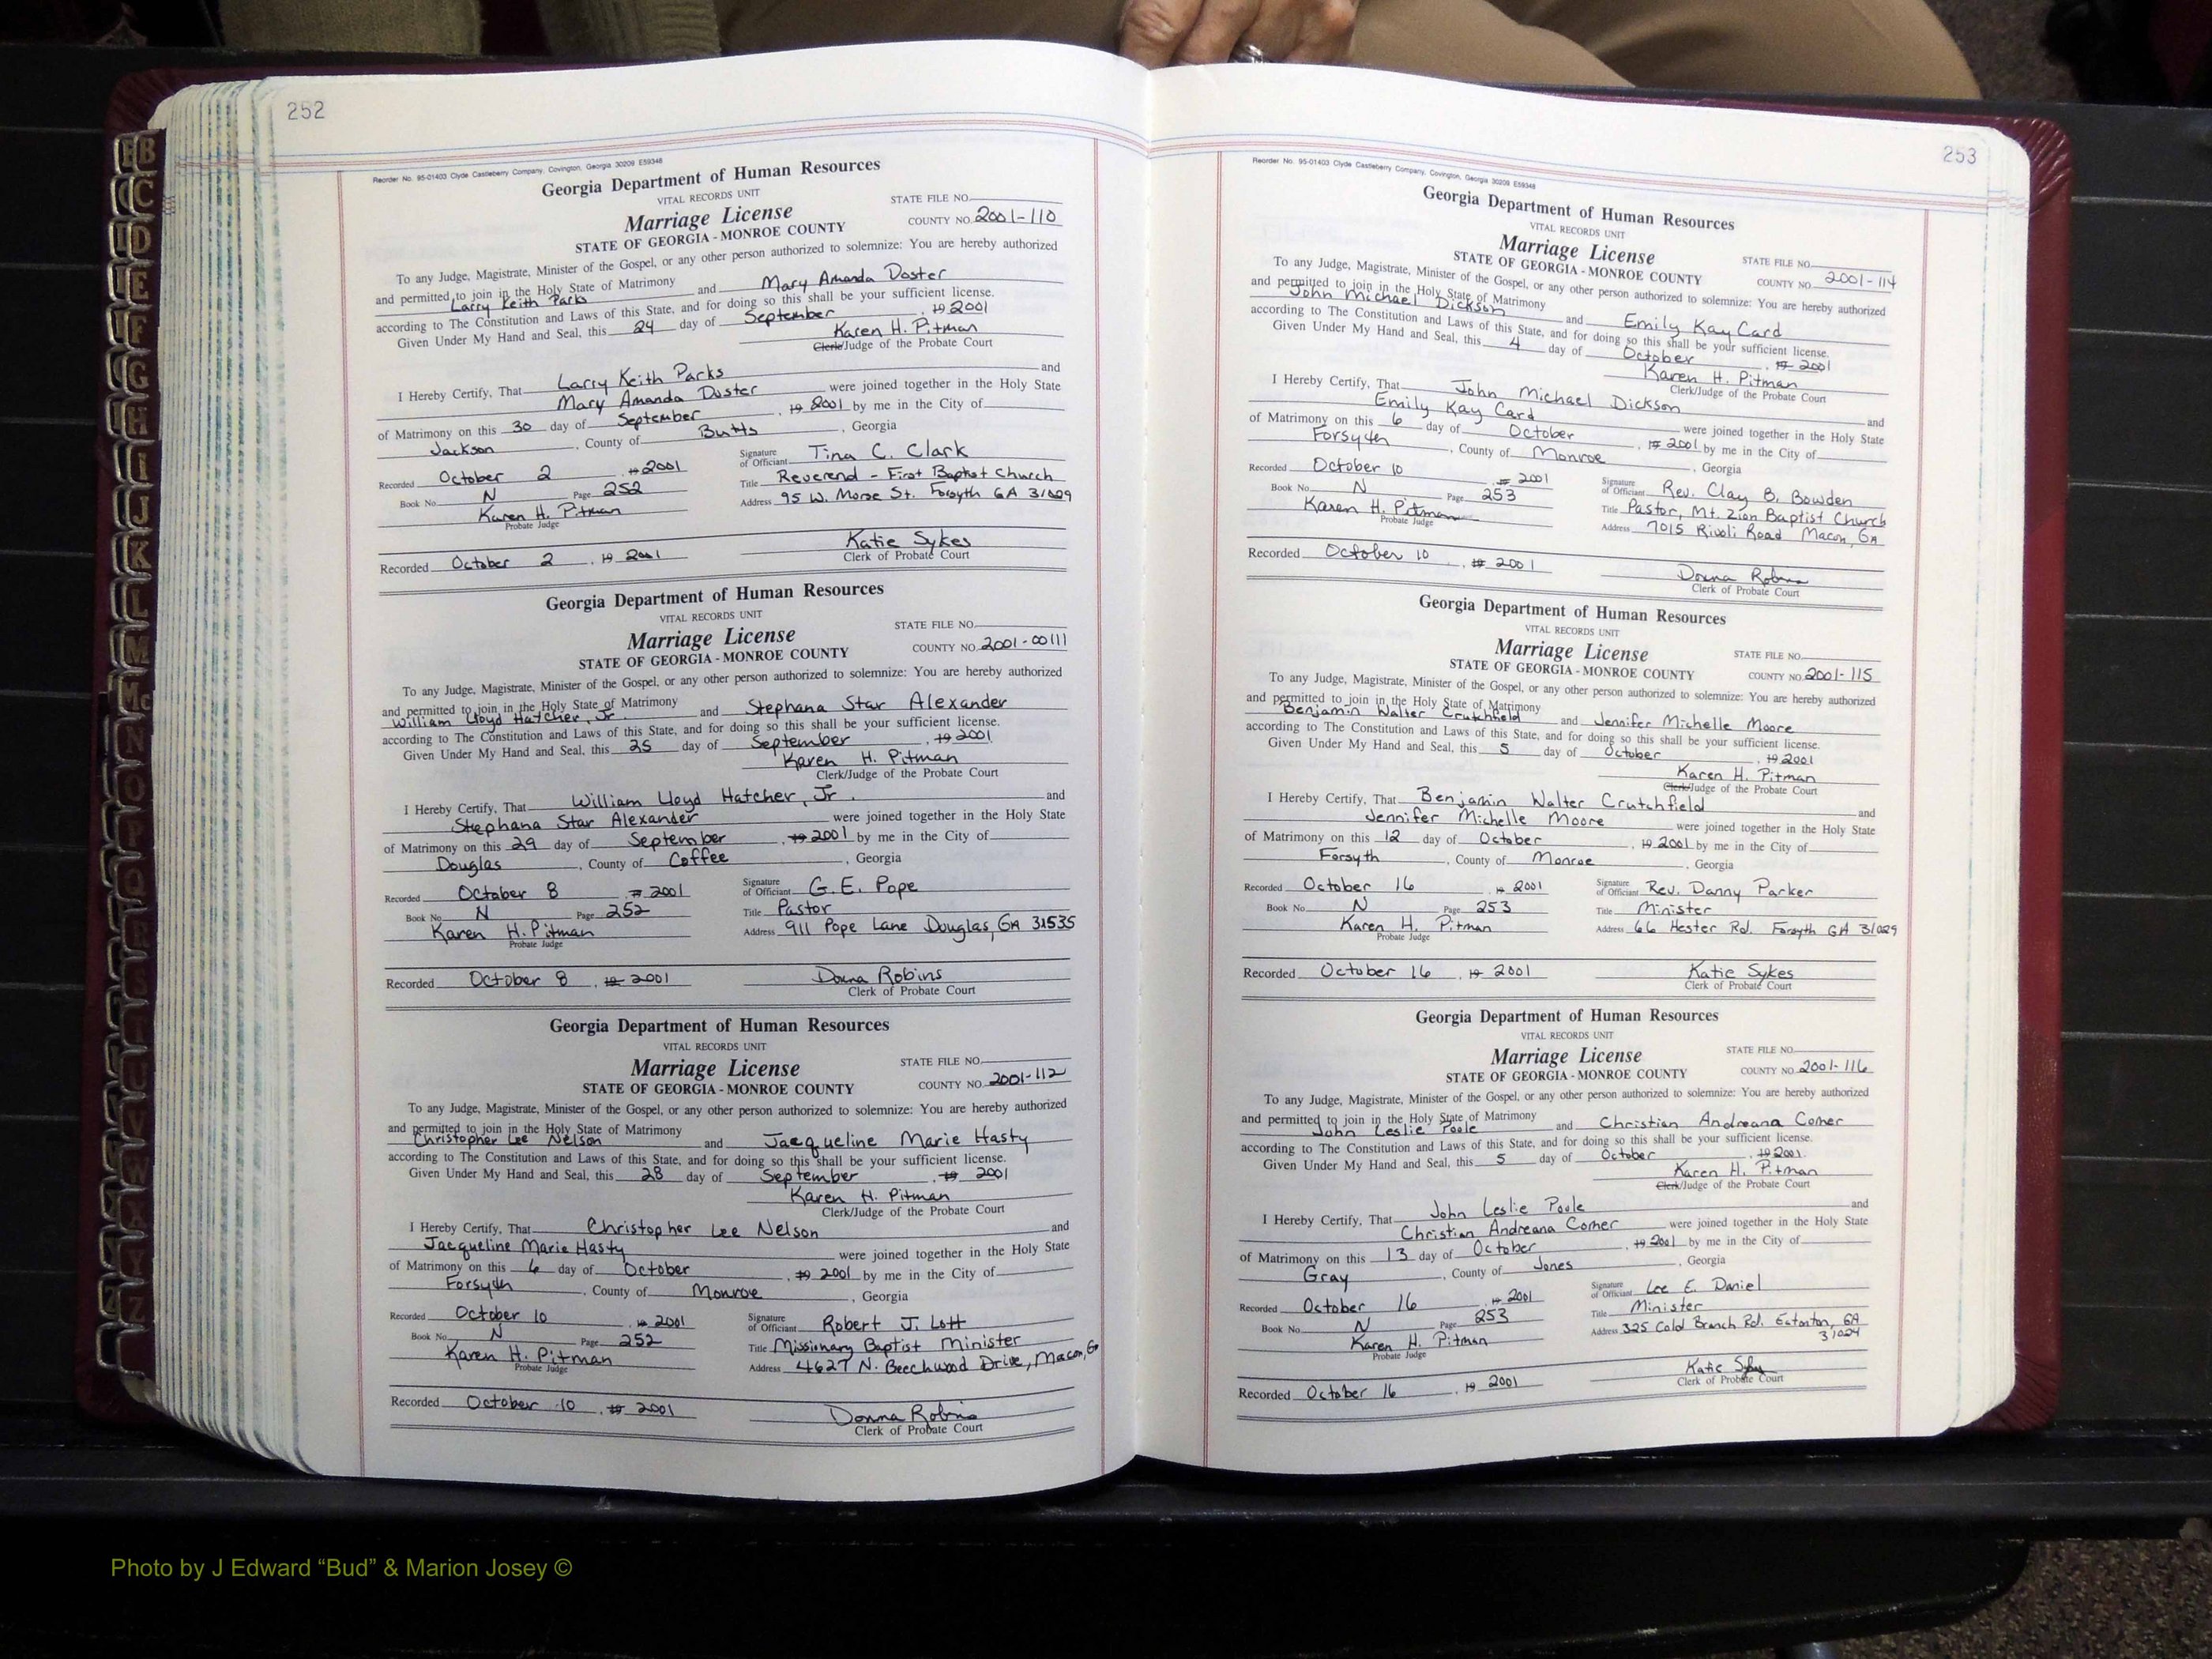 252
Reorder No. 95-01403 Clyde Castleberry Company, Covington, Georgia 30209 E59348
Georgia Department of Human Resources
VITAL RECORDS UNIT
STATE FILE NO.
Marriage License
COUNTY NO. 2001-110
STATE OF GEORGIA - MONROE COUNTY
To any Judge, Magistrate, Minister of the Gospel, or any other person authorized to solemnize: You are hereby authorized
and permitted to join in the Holy State of Matrimony
Larry Keith Parks and Mary Amanda Doster
according to The Constitution and Laws of this State, and for doing so this shall be your sufficient license.
Given Under My Hand and Seal, this 24 day of September, 19 2001
Karen H. Pitman
Clerk/Judge of the Probate Court
I Hereby Certify, That Larry Keith Parks and
Mary Amanda Doster were joined together in the Holy State
of Matrimony on this 30 day of September, 19 2001 by me in the City of
Jackson, County of Butts, Georgia
Recorded October 2, 19 2001
Signature of Officiant Tina C. Clark
Book No. N Page 252
Title Reverend - First Baptist Church
Karen H. Pitman
Probate Judge
Address 95 W. Morse St. Forsyth GA 31029
Katie Sykes
Clerk of Probate Court
Recorded October 2, 19 2001
Georgia Department of Human Resources
VITAL RECORDS UNIT
STATE FILE NO.
Marriage License
COUNTY NO. 2001-00111
STATE OF GEORGIA - MONROE COUNTY
To any Judge, Magistrate, Minister of the Gospel, or any other person authorized to solemnize: You are hereby authorized
and permitted to join in the Holy State of Matrimony
William Lloyd Hatcher, Jr. and Stephana Star Alexander
according to The Constitution and Laws of this State, and for doing so this shall be your sufficient license.
Given Under My Hand and Seal, this 25 day of September, 19 2001
Karen H. Pitman
Clerk/Judge of the Probate Court
I Hereby Certify, That William Lloyd Hatcher, Jr. and
Stephana Star Alexander were joined together in the Holy State
of Matrimony on this 29 day of September, 19 2001 by me in the City of
Douglas, County of Coffee, Georgia
Recorded October 8, 19 2001
Signature of Officiant G.E. Pope
Book No. N Page 252
Title Pastor
Karen H. Pitman
Probate Judge
Address 911 Pope Lane Douglas, GA 31535
Recorded October 8, 19 2001
Donna Robins
Clerk of Probate Court
Georgia Department of Human Resources
VITAL RECORDS UNIT
STATE FILE NO.
Marriage License
COUNTY NO. 2001-112
STATE OF GEORGIA - MONROE COUNTY
To any Judge, Magistrate, Minister of the Gospel, or any other person authorized to solemnize: You are hereby authorized
and permitted to join in the Holy State of Matrimony
Christopher Lee Nelson and Jacqueline Marie Hasty
according to The Constitution and Laws of this State, and for doing so this shall be your sufficient license.
Given Under My Hand and Seal, this 28 day of September, 19 2001
Karen H. Pitman
Clerk/Judge of the Probate Court
I Hereby Certify, That Christopher Lee Nelson and
Jacqueline Marie Hasty were joined together in the Holy State
of Matrimony on this 6 day of October, 19 2001 by me in the City of
Forsyth, County of Monroe, Georgia
Recorded October 10, 19 2001
Signature of Officiant Robert J. Lott
Book No. N Page 252
Title Missionary Baptist Minister
Karen H. Pitman
Probate Judge
Address 4627 N. Beechwood Drive, Macon, Ga
Recorded October 10, 19 2001
Donna Robins
Clerk of Probate Court
253
Reorder No. 95-01403 Clyde Castleberry Company, Covington, Georgia 30209 E59348
Georgia Department of Human Resources
VITAL RECORDS UNIT
Marriage License
STATE FILE NO.
STATE OF GEORGIA - MONROE COUNTY
COUNTY NO. 2001-114
To any Judge, Magistrate, Minister of the Gospel, or any other person authorized to solemnize: You are hereby authorized
and permitted to join in the Holy State of Matrimony
John Michael Dickson and Emily Kay Card
according to The Constitution and Laws of this State, and for doing so this shall be your sufficient license.
Given Under My Hand and Seal, this 4 day of October, 19 2001
Karen H. Pitman
Clerk/Judge of the Probate Court
I Hereby Certify, That John Michael Dickson and
Emily Kay Card were joined together in the Holy State
of Matrimony on this 6 day of October, 19 2001 by me in the City of
Forsyth, County of Monroe, Georgia
Recorded October 10, 19 2001
Signature of Officiant Rev. Clay B. Bowden
Book No. N Page 253
Title Pastor, Mt. Zion Baptist Church
Karen H. Pitman
Probate Judge
Address 7015 Rivoli Road Macon, GA
Recorded October 10, 19 2001
Donna Robins
Clerk of Probate Court
Georgia Department of Human Resources
VITAL RECORDS UNIT
Marriage License
STATE FILE NO.
STATE OF GEORGIA - MONROE COUNTY
COUNTY NO. 2001-115
To any Judge, Magistrate, Minister of the Gospel, or any other person authorized to solemnize: You are hereby authorized
and permitted to join in the Holy State of Matrimony
Benjamin Walter Crutchfield and Jennifer Michelle Moore
according to The Constitution and Laws of this State, and for doing so this shall be your sufficient license.
Given Under My Hand and Seal, this 5 day of October, 19 2001
Karen H. Pitman
Clerk/Judge of the Probate Court
I Hereby Certify, That Benjamin Walter Crutchfield and
Jennifer Michelle Moore were joined together in the Holy State
of Matrimony on this 12 day of October, 19 2001 by me in the City of
Forsyth, County of Monroe, Georgia
Recorded October 16, 19 2001
Signature of Officiant Rev. Danny Parker
Book No. N Page 253
Title Minister
Karen H. Pitman
Probate Judge
Address 66 Hester Rd. Forsyth GA 31029
Recorded October 16, 19 2001
Katie Sykes
Clerk of Probate Court
Georgia Department of Human Resources
VITAL RECORDS UNIT
Marriage License
STATE FILE NO.
STATE OF GEORGIA - MONROE COUNTY
COUNTY NO. 2001-116
To any Judge, Magistrate, Minister of the Gospel, or any other person authorized to solemnize: You are hereby authorized
and permitted to join in the Holy State of Matrimony
John Leslie Poole and Christian Andreana Comer
according to The Constitution and Laws of this State, and for doing so this shall be your sufficient license.
Given Under My Hand and Seal, this 5 day of October, 19 2001.
Karen H. Pitman
Clerk/Judge of the Probate Court
I Hereby Certify, That John Leslie Poole and
Christian Andreana Comer were joined together in the Holy State
of Matrimony on this 13 day of October, 19 2001 by me in the City of
Gray, County of Jones, Georgia
Recorded October 16, 19 2001
Signature of Officiant Lee E. Daniel
Book No. N Page 253
Title Minister
Karen H. Pitman
Probate Judge
Address 325 Cold Branch Rd. Eatonton, GA
31024
Katie Sykes
Clerk of Probate Court
Recorded October 16, 19 2001
B
C
D
E
F
G
H
I
J
K
L
M
Mc
N
O
P
Q
R
S
T
U
V
W
X
Y
Z
Photo by J Edward “Bud” & Marion Josey ©